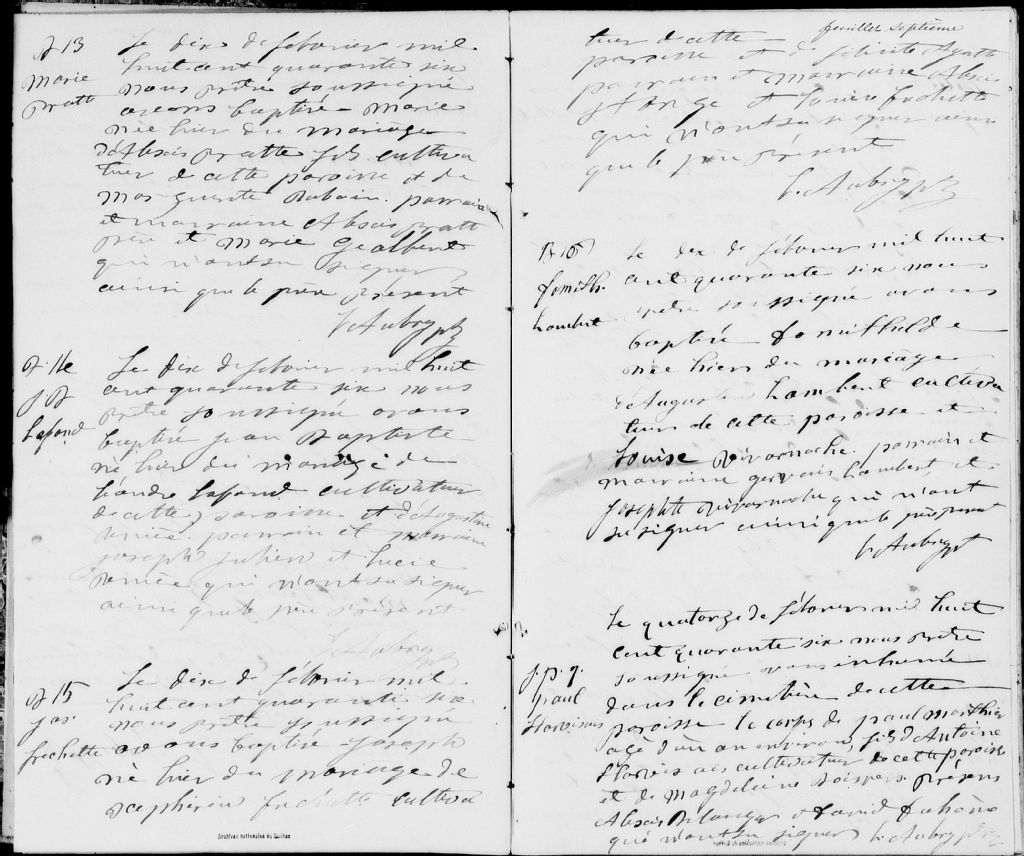 B 13
Marie
Pratt
Le dix de février mil
huit cent quarante six
nous prêtre soussigné
avons baptisé Marie
née hier du mariage
d'Alexis Pratte fils cultiva
teur de cette paroisse et de
Marguerite parrain
et marraine Alexis Pratt
père et Marie
qui n'ont su signer
ainsi que le père présent
L. Aubry ptr
B 14
J B
Lafond
Le dix de février mil huit
cent quarante six nous
prêtre soussigné avons
baptisé Jean Baptiste
né hier du mariage de
Léandre Lafond cultivateur
de cette paroisse et d'Augustine
parrain et marraine
Joseph Julien et Lucie
qui n'ont su signer
ainsi que le père présent
L. Aubry ptr
B 15
Jos.
Frechette
Le dix de février mil
huit cent quarante six
nous prêtre soussigné
avons baptisé Joseph
né hier du mariage de
Zéphirin Frechette cultiva
Archives nationales du Québec
feuillet septième
teur de cette
paroisse et de Félicité
parrain et marraine Alexis
et Frechette
qui n'ont su signer ainsi
que le père présent
L. Aubry ptr
B 16
Domithil.
Lambert
Le dix de février mil huit
cent quarante six nous
prêtre soussigné avons
baptisé Domithilde
née hier du mariage
d'Augustin Lambert cultiva
teur de cette paroisse et
Louise Rivarnache parrain et
marraine Gervais Lambert et
Josephte Rivarnache qui n'ont
su signer ainsi que le père présent
L. Aubry pt
S. p. 9.
Paul
Le quatorze de février mil huit
cent quarante six nous prêtre
soussigné avons inhumé
dans le cimetière de cette
paroisse le corps de Paul
agé d'un an environ, fils d'Antoine
cultivateur de cette paroisse
et de Magdeleine présens
Alexis Belanger et David
qui n'ont su signer L. Aubry ptr